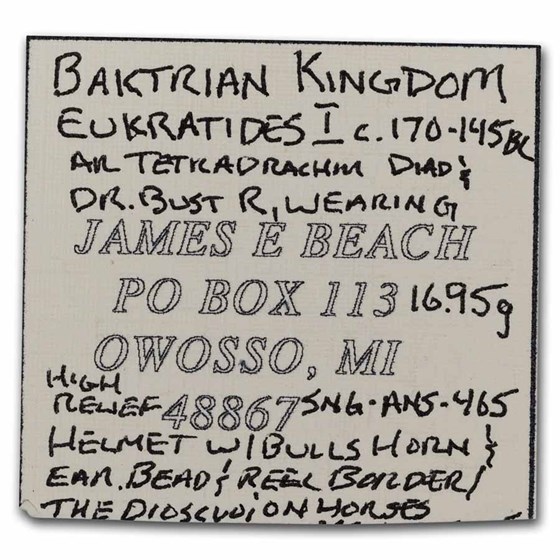 BAKTRIAN KINGDOM
EUKRATIDES I c. 170-145 BC
AR TETRADRACHM DIAD &
DR. BUST R, WEARING
JAMES E BEACH
PO BOX 113 16.95g
OWOSSO, MI
HIGH
RELIEF 48867 SNG-ANS-465
HELMET W/BULLS HORN &
EAR. BEAD & REEL BORDER/
THE DIOSCUIOI ON HORSES